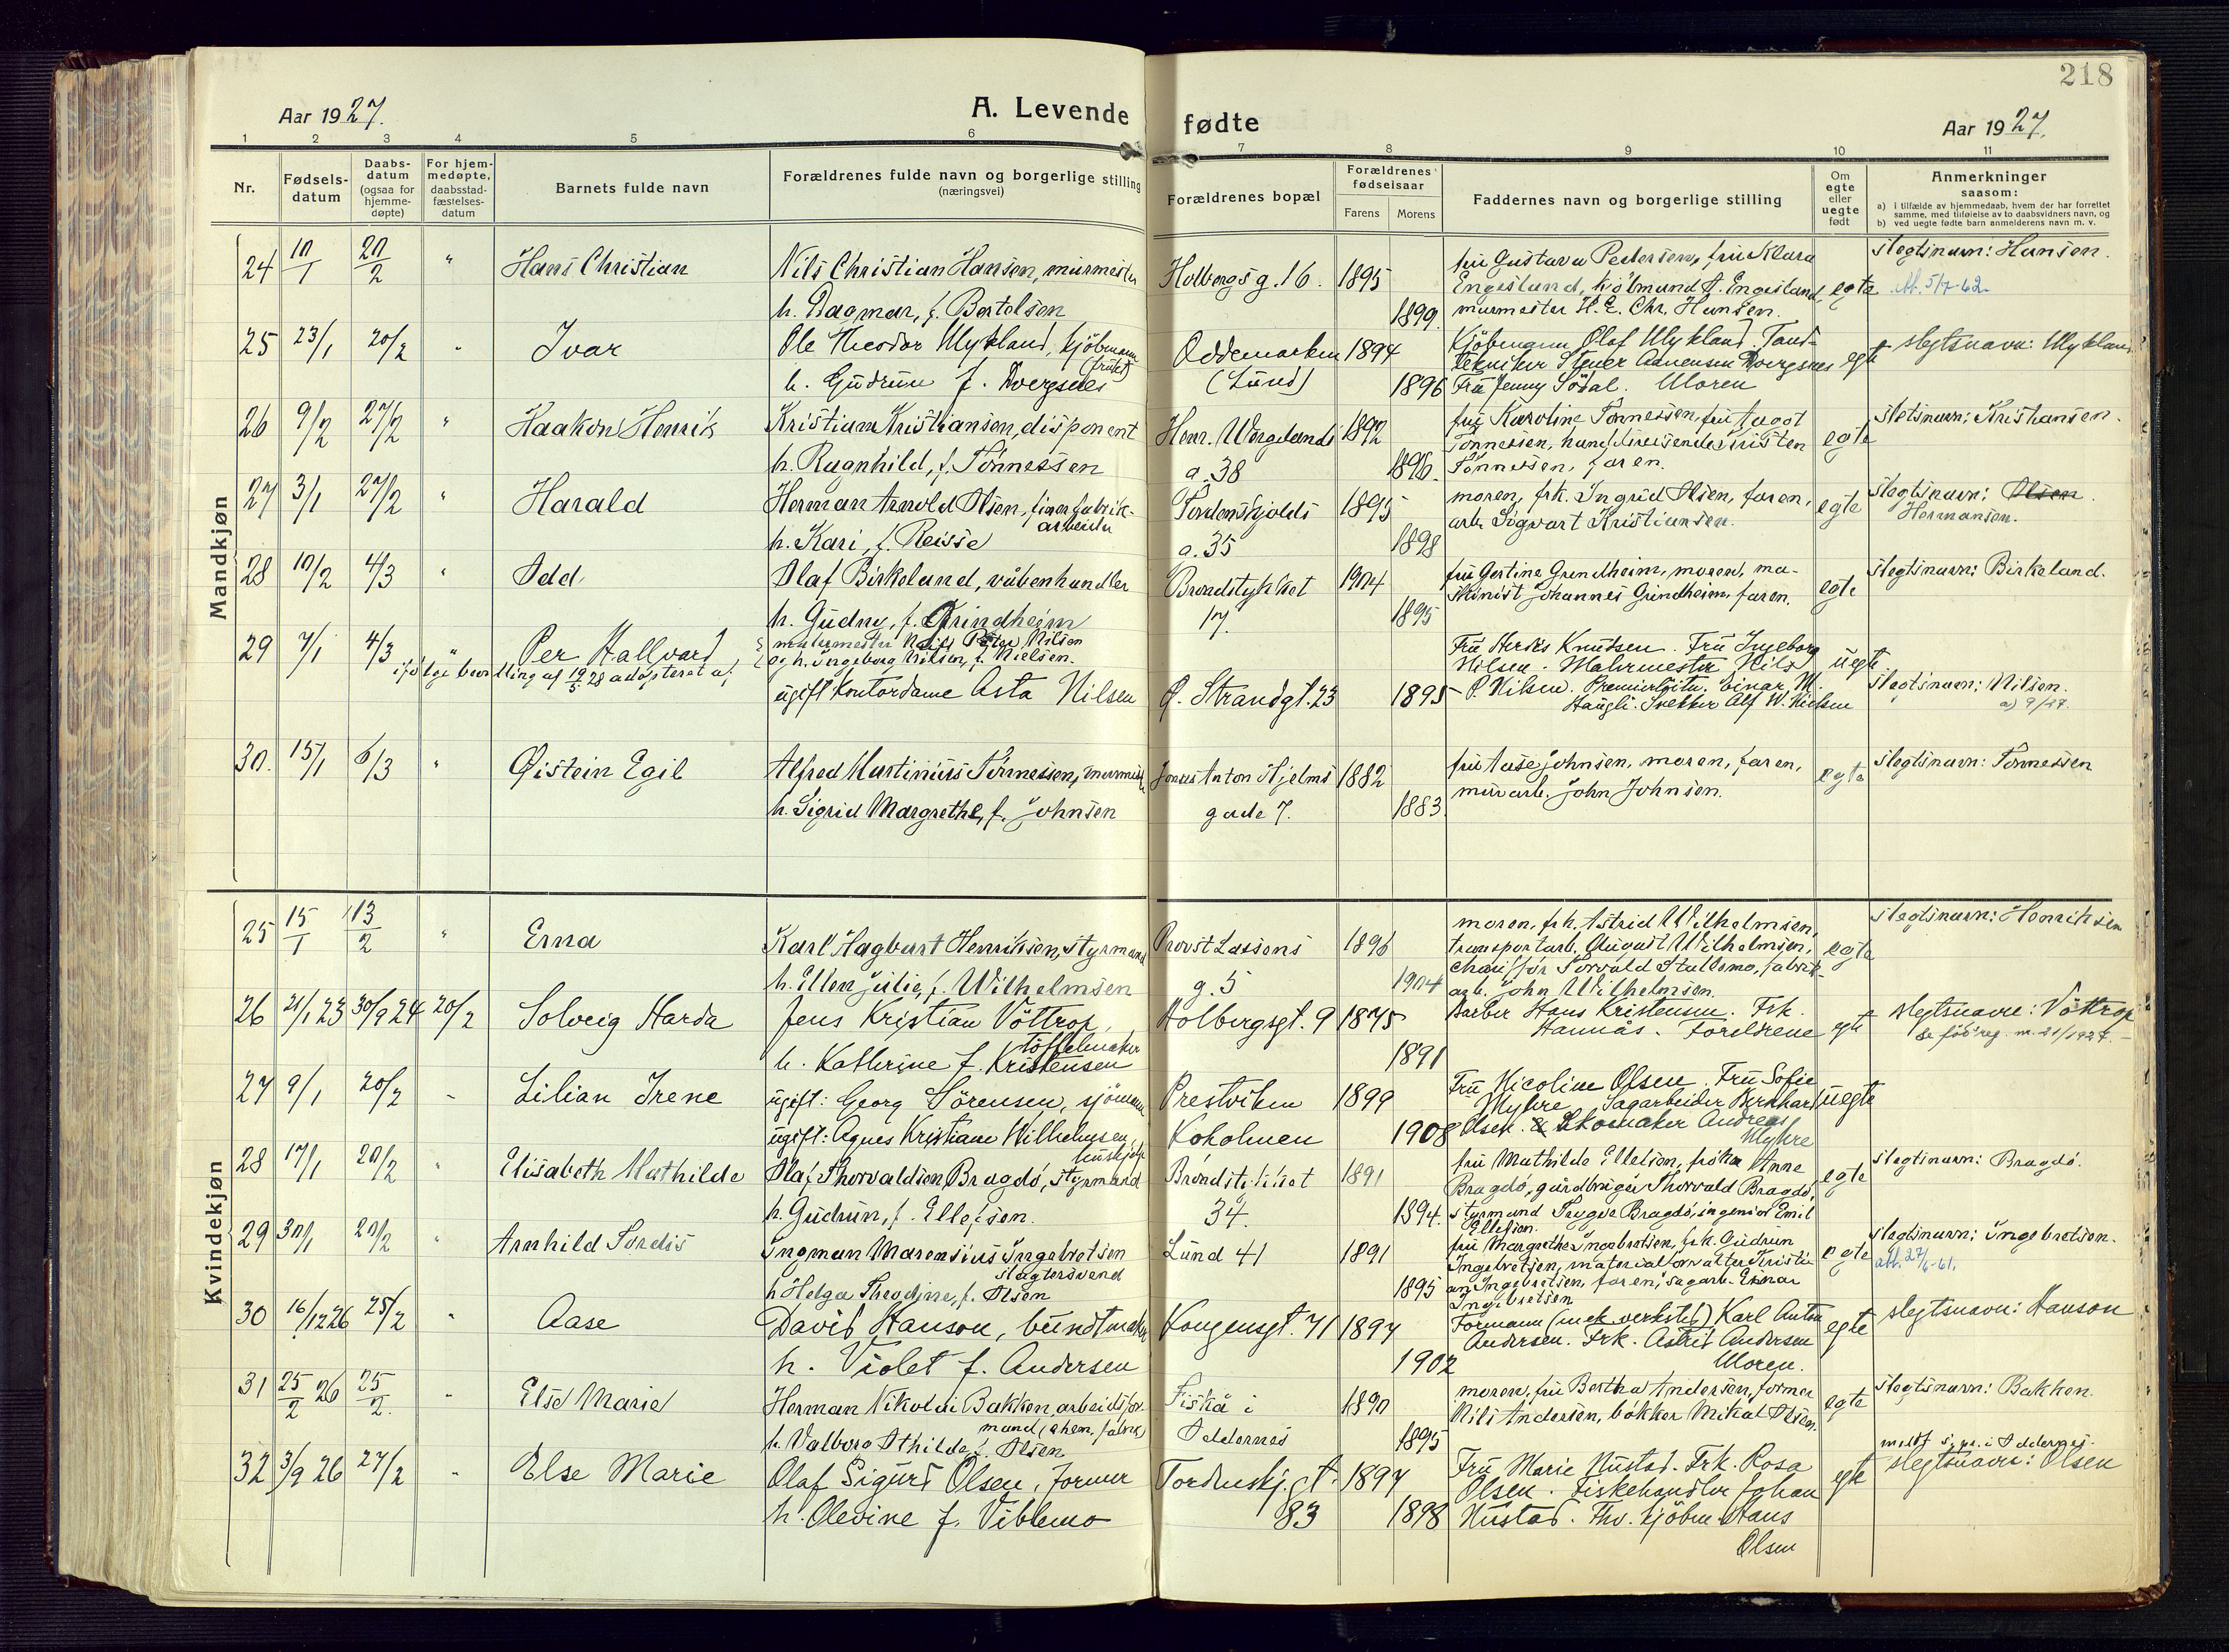 218
Aar 1927.
A. Levende fødte
Aar 1927.
1 2 3 4 5 6 7 8 9 10 11
Nr.
Fødsels-
datum
Daabs-
datum
(ogsaa for
hjemme-
døpte)
For hjem-
medøpte,
daabsstad-
fæstelses-
datum
Barnets fulde navn
Forældrenes fulde navn og borgerlige stilling
(næringsvei)
Forældrenes bopæl
Forældrenes
fødselsaar
Farens Morens
Faddernes navn og borgerlige stilling
Om
egte
eller
uegte
født
Anmerkninger
saasom:
a) i tilfælde av hjemmedaab, hvem der har forrettet
samme, med tilføielse av to daabsvidners navn, og
b) ved uegte fødte barn anmelderens navn m. v.
Mandkjøn
24 10/1 20/2 " Hans Christian
Nils Christian Hansen, murmester
h. Dagmar, f. Bertelsen
Holbergs g. 16. 1895
1899.
fru Gustava Pedersen, fru Klara
Engesland, kjölmand A. Engesland,
murmester H. E. Chr. Hansen.
egte
slegtsnavn: Hansen.
Att. 5/7-62.
25 23/1 20/2 " Ivar
Ole Theodor Mykland, kjöbmann
(frukt)
h. Gudrun f. Dvergsnes
Oddemarken 1894
(Lund) 1896
Kjöbmann Olaf Mykland. Tand-
tekniker Stener Adnensen Dvergsnes
Fru Jenny Södal. Moren
egte
slegtsnavn: Mykland
26 9/2 27/2 " Haakon Henrik
Kristian Kristiansen, disponent
h. Ragnhild, f. Tönnessen
Henr. Wergelands 1892
g. 38 1896.
fru Karoline Tönnessen, fru Aagot
Tönnessen, handelsreisende Kristen
Tönnessen, faren.
egte
sletsnavn: Kristiansen.
27 3/1 27/2 " Harald
Herman Arnold Olsen, finerfabrik-
arbeider
h. Kari, f. Reisse
Tordenskjolds 1895
g. 35 1898
moren, frk. Ingrid Olsen, faren,
arb. Sigvart Kristiansen.
egte
slegtsnavn: Olsen.
Hermansen.
28 10/2 4/3 " Odd.
Olaf Birkeland, våbenhandler
h. Gudny, f. Grindheim
Brøndstykket 1904
17. 1895
fru Gertine Grundheim, moren, ma-
skinist Johannes Grindheim, faren.
egte
slegtsnavn: Birkeland.
29 7/1 4/3 " Per Hallvard
ifölge bevilling af 19/5 28 adopteret af
malermester Nils Peter Nilsen
og h. Ingeborg Nilsen, f. Nielsen.
ugift Kontordame Asta Nilsen
Ø. Strandgt. 23 1895
Fru Herdis Knudsen. Fru Ingeborg
Nilsen. Malermester Nils
P. Nilsen. Premierlöitn. Einar M.
Haugli. Snekker Alf W. Nielsen
uegte.
slegtsnavn: Nilsen.
a) 9/27.
30. 15/1 6/3 " Øistein Egil
Alfred Martinius Tönnessen, murmester
h. Sigrid Margrethe, f. Johnsen
Jonas Anton Hjelms 1882
gade 7. 1883.
fru Aase Johnsen, moren, faren,
murarb. John Johnsen.
egte
slegtsnavn: Tönnessen
Kvindekjøn
25 15/1 13/2 " Erna
Karl Hagbart Henriksen, styrmand
h. Ellen Julie, f. Wilhelmsen
Provst Lassens 1896
g. 5 1904
moren, frk. Astrid Wilhelmsen,
transportarb. August Wilhelmsen,
chauffør Torvald Stallemo, fabrik-
arb. John Wilhelmsen.
egte
slegtsnavn: Henriksen
26 21/1 23 30/9 24 20/2 Solveig Harda
Jens Kristian Vöttrop,
töffelmaker
h. Kathrine f. Kristensen
Holbergsgt. 9 1875
1891
Barber Hans Kristensen. Frk.
Hannås. Foreldrene
egte
slegtsnavn: Vöttrop
Se föd.reg. nr. 21/1927.
27 9/1 20/2 " Lilian Irene
ugift: Georg Sörensen, sjömann
ugift: Agnes Kristiane Wilhelmsen,
hushjelp
Prestviken 1899
Koholmen 1908
Fru Nicoline Olsen. Fru Sofie
Myhre. Sagarbeider Bernhard
Olsen. Skomaker Andreas
Myhre
uegte
28 17/1 20/2 Elisabeth Mathilde
Olaf Thorvaldsen Bragdö, styrmand
h. Gudrun, f. Ellefsen.
Brøndstykket 1891
34. 1894.
fru Mathilde Ellefsen, fröken Anne
Bragdö, gårdbruger Thorvald Bragdö,
styrmand Trygve Bragdö, ingeniör Emil
Ellefsen.
egte
slegtsnavn: Bragdö.
29 30/1 20/2 " Arnhild Tordis
Ingman Marensius Ingebretsen
slagtersvend
h Helga Theodine, f. Olsen
Lund 41 1891
1895
fru Margrethe Ingebretsen, frk. Gudrun
Ingebretsen, materialforvalter Kristi-
an Ingebretsen, faren, sagarb. Einar
Ingebretsen
egte
slegtsnavn: Ingebretsen.
att. 27/6-61.
30 16/12 26 25/2 " Aase
David Hanson, bundtmaker
h. Violet f. Andersen
Kongensgt. 71 1897
1902
Formann (mek. verksted) Karl Anton
Andersen. Frk. Astrid Andersen
Moren.
egte
slegtsnavn: Hanson
31 25/2 26 25/2. " Else Marie
Herman Nikolai Bakken, arbeidsfor-
mand (chem. fabrik)
h. Valborg Othilde f. Olsen
Fiskå i 1890
Oddernes 1895
moren, fru Bertha Andersen, former
Nils Andersen, bökker Mikal Olsen.
egte
slegtsnavn: Bakken.
32 3/9 26 27/2 " Else Marie
Olaf Sigurd Olsen, former
h. Olevine f. Viblemo
Tordenskj. gt. 1897
83 1898
Fru Marie Nustad. Frk. Rosa
Olsen. Fiskehandler Johan
Nustad. Fhv. kjöbm. Hans
Olsen
egte
slegtsnavn: Olsen